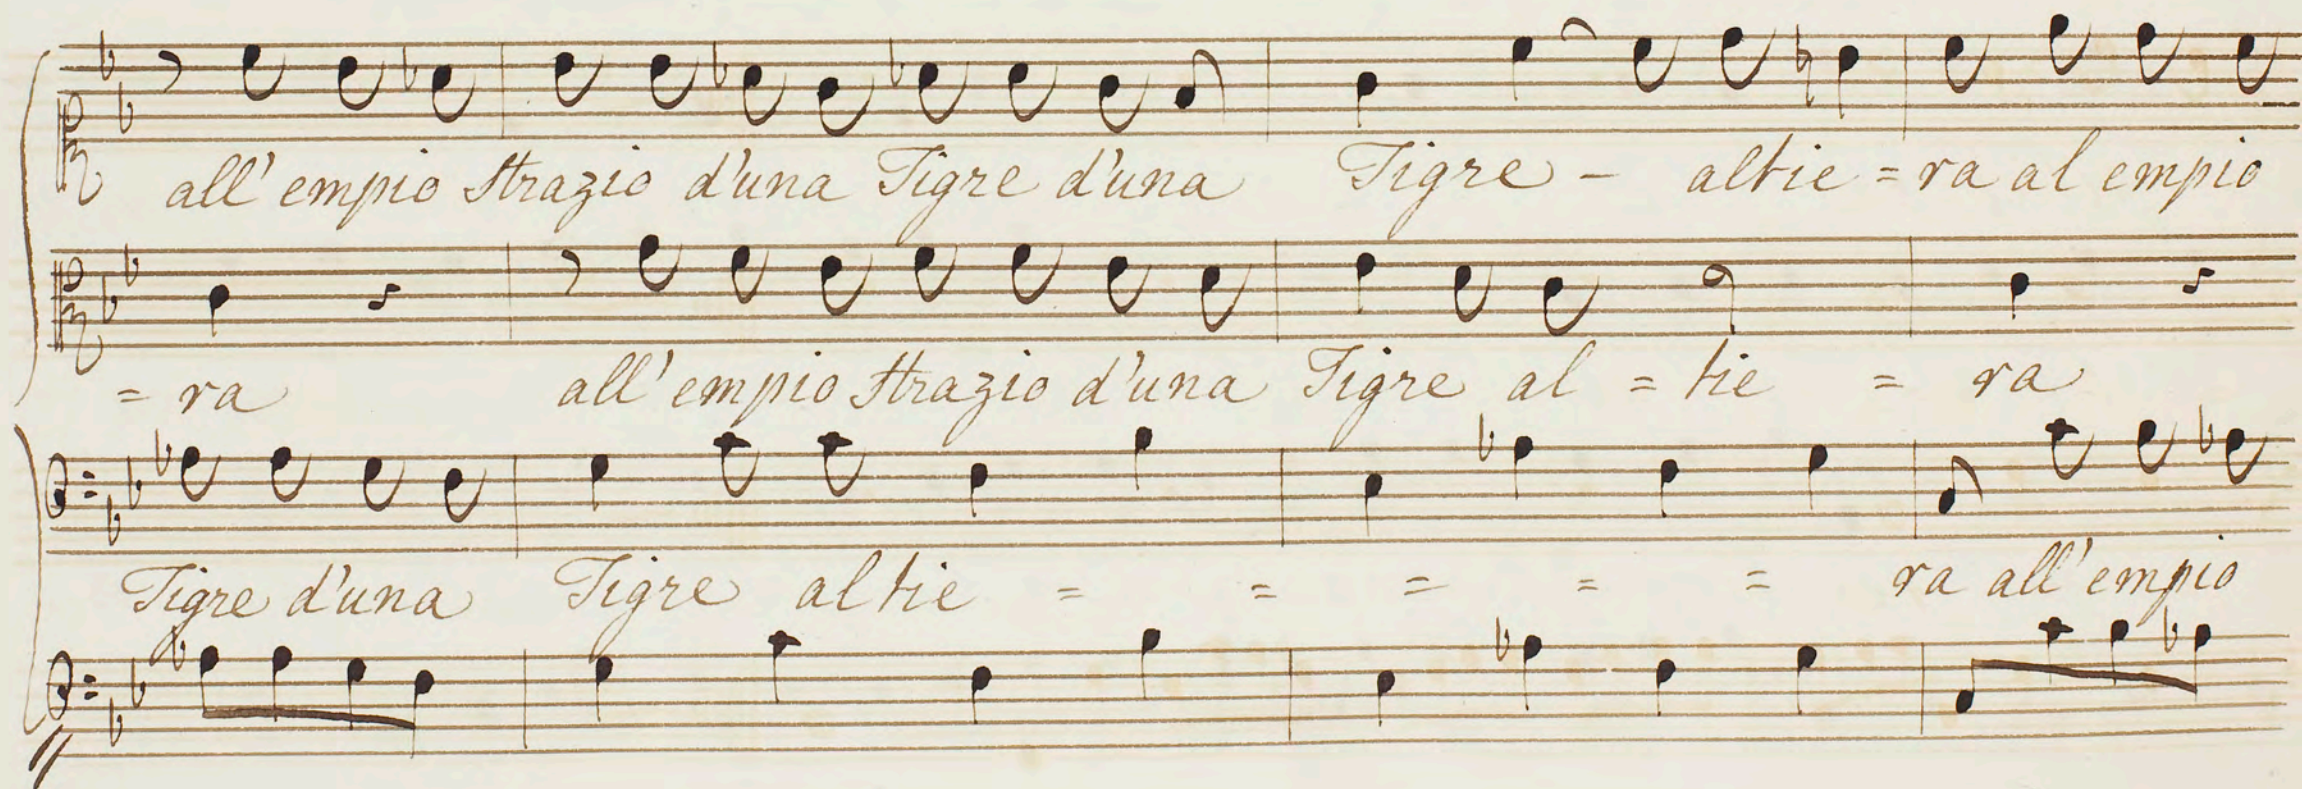 all' empio Strazio d'una Tigre d'una Tigre - altie = ra al empio
= ra all' empio Strazio d'una Tigre al = tie = ra
Tigre d'una Tigre altie = = = = = ra all' empio